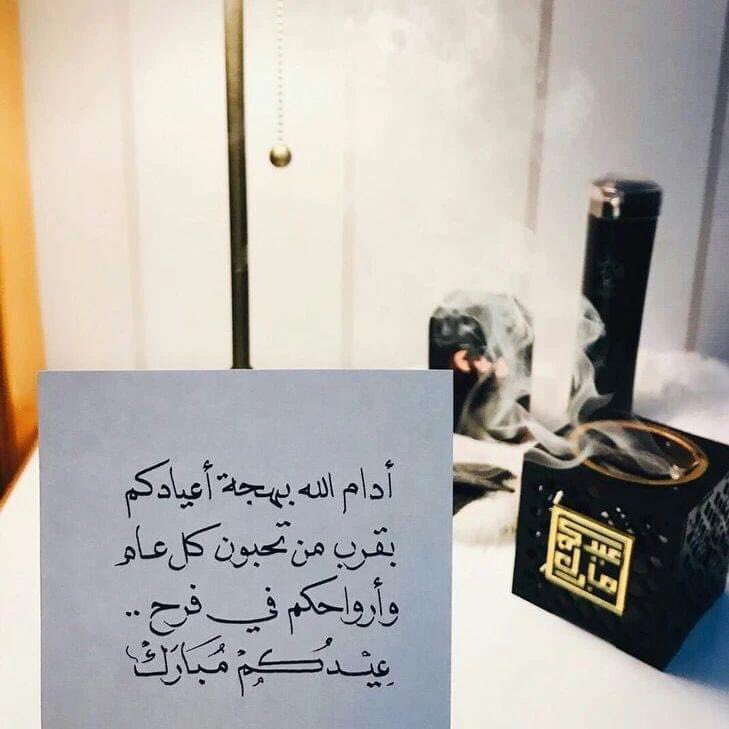 أدام الله بهجة أعيادكم
بقرب من تحبون كل عام
وأرواحكم في فرح ..
عِيْدُكُمْ مُبَارَكْ
عيدكم مبارك